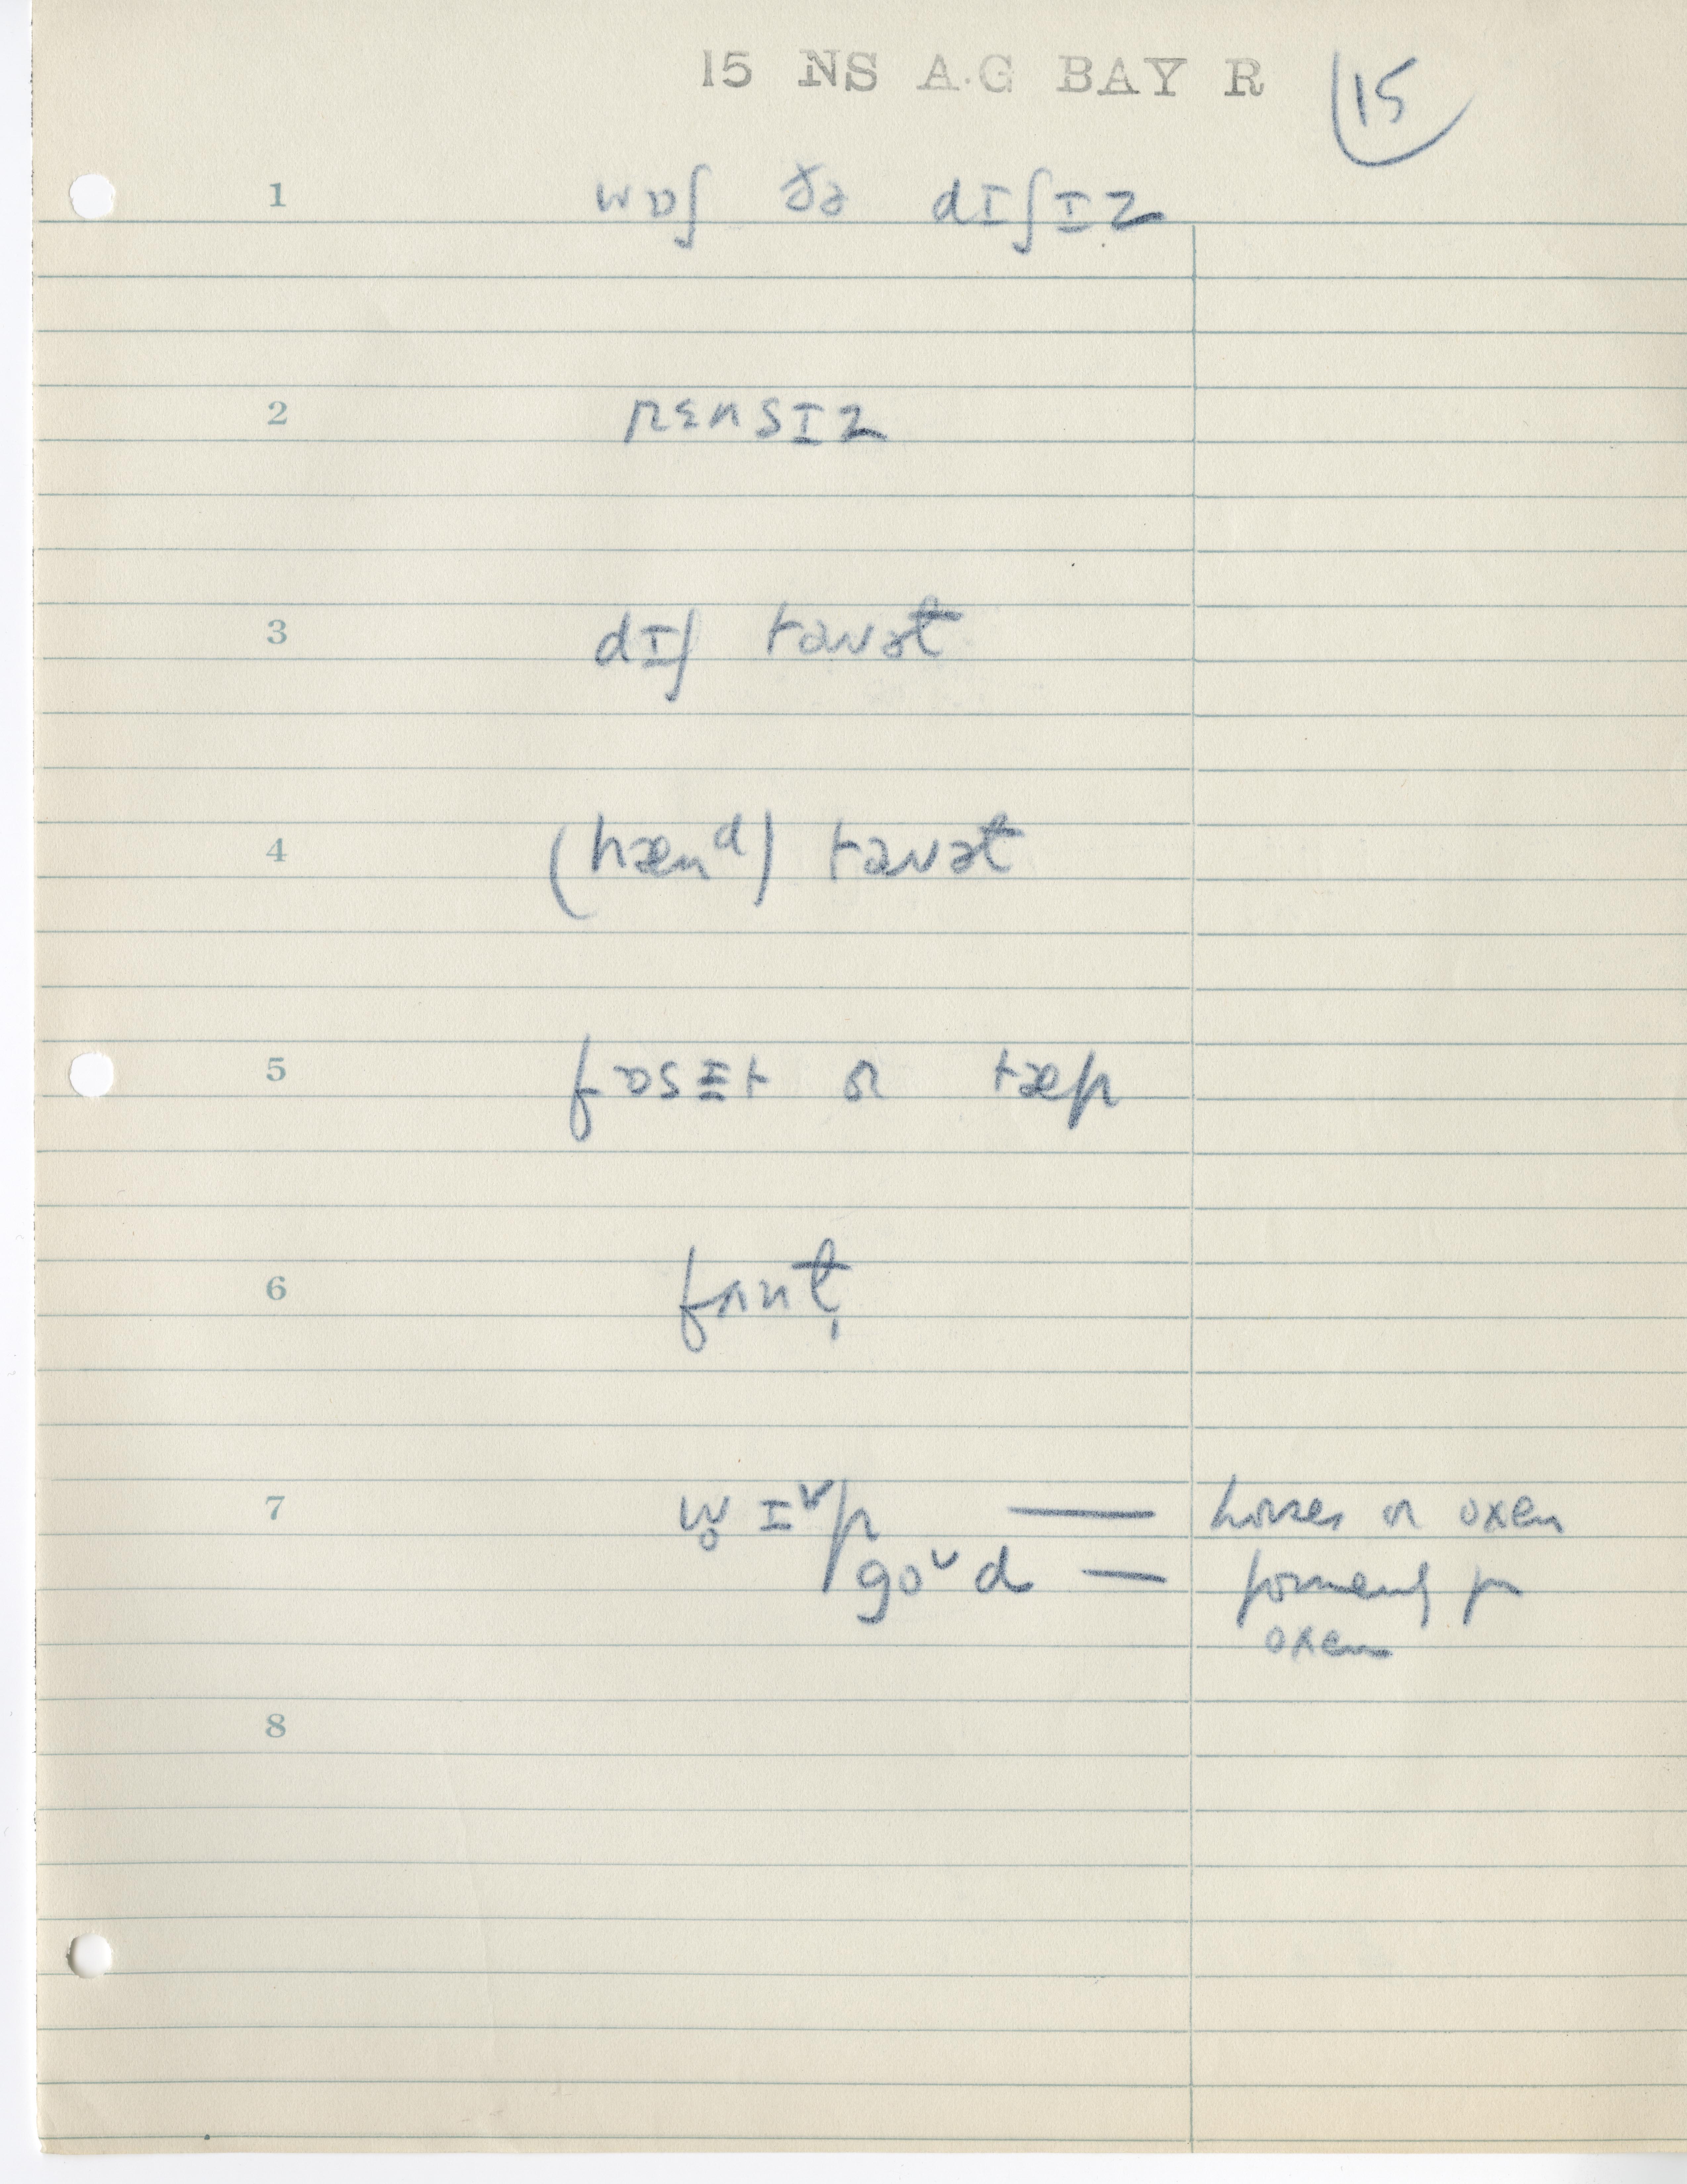 15 NS A.G BAY R 15
1 wɒʃ ðə dɪʃɪz
2 rɛnsɪz
3 dɪʃ taʊəɫ
4 (hænᵈ) taʊəɫ
5 fɒsɪt or tæp
6 
7 w̥ɪᵛp — horses or oxen
goᵛd — formerly for
oxen
8